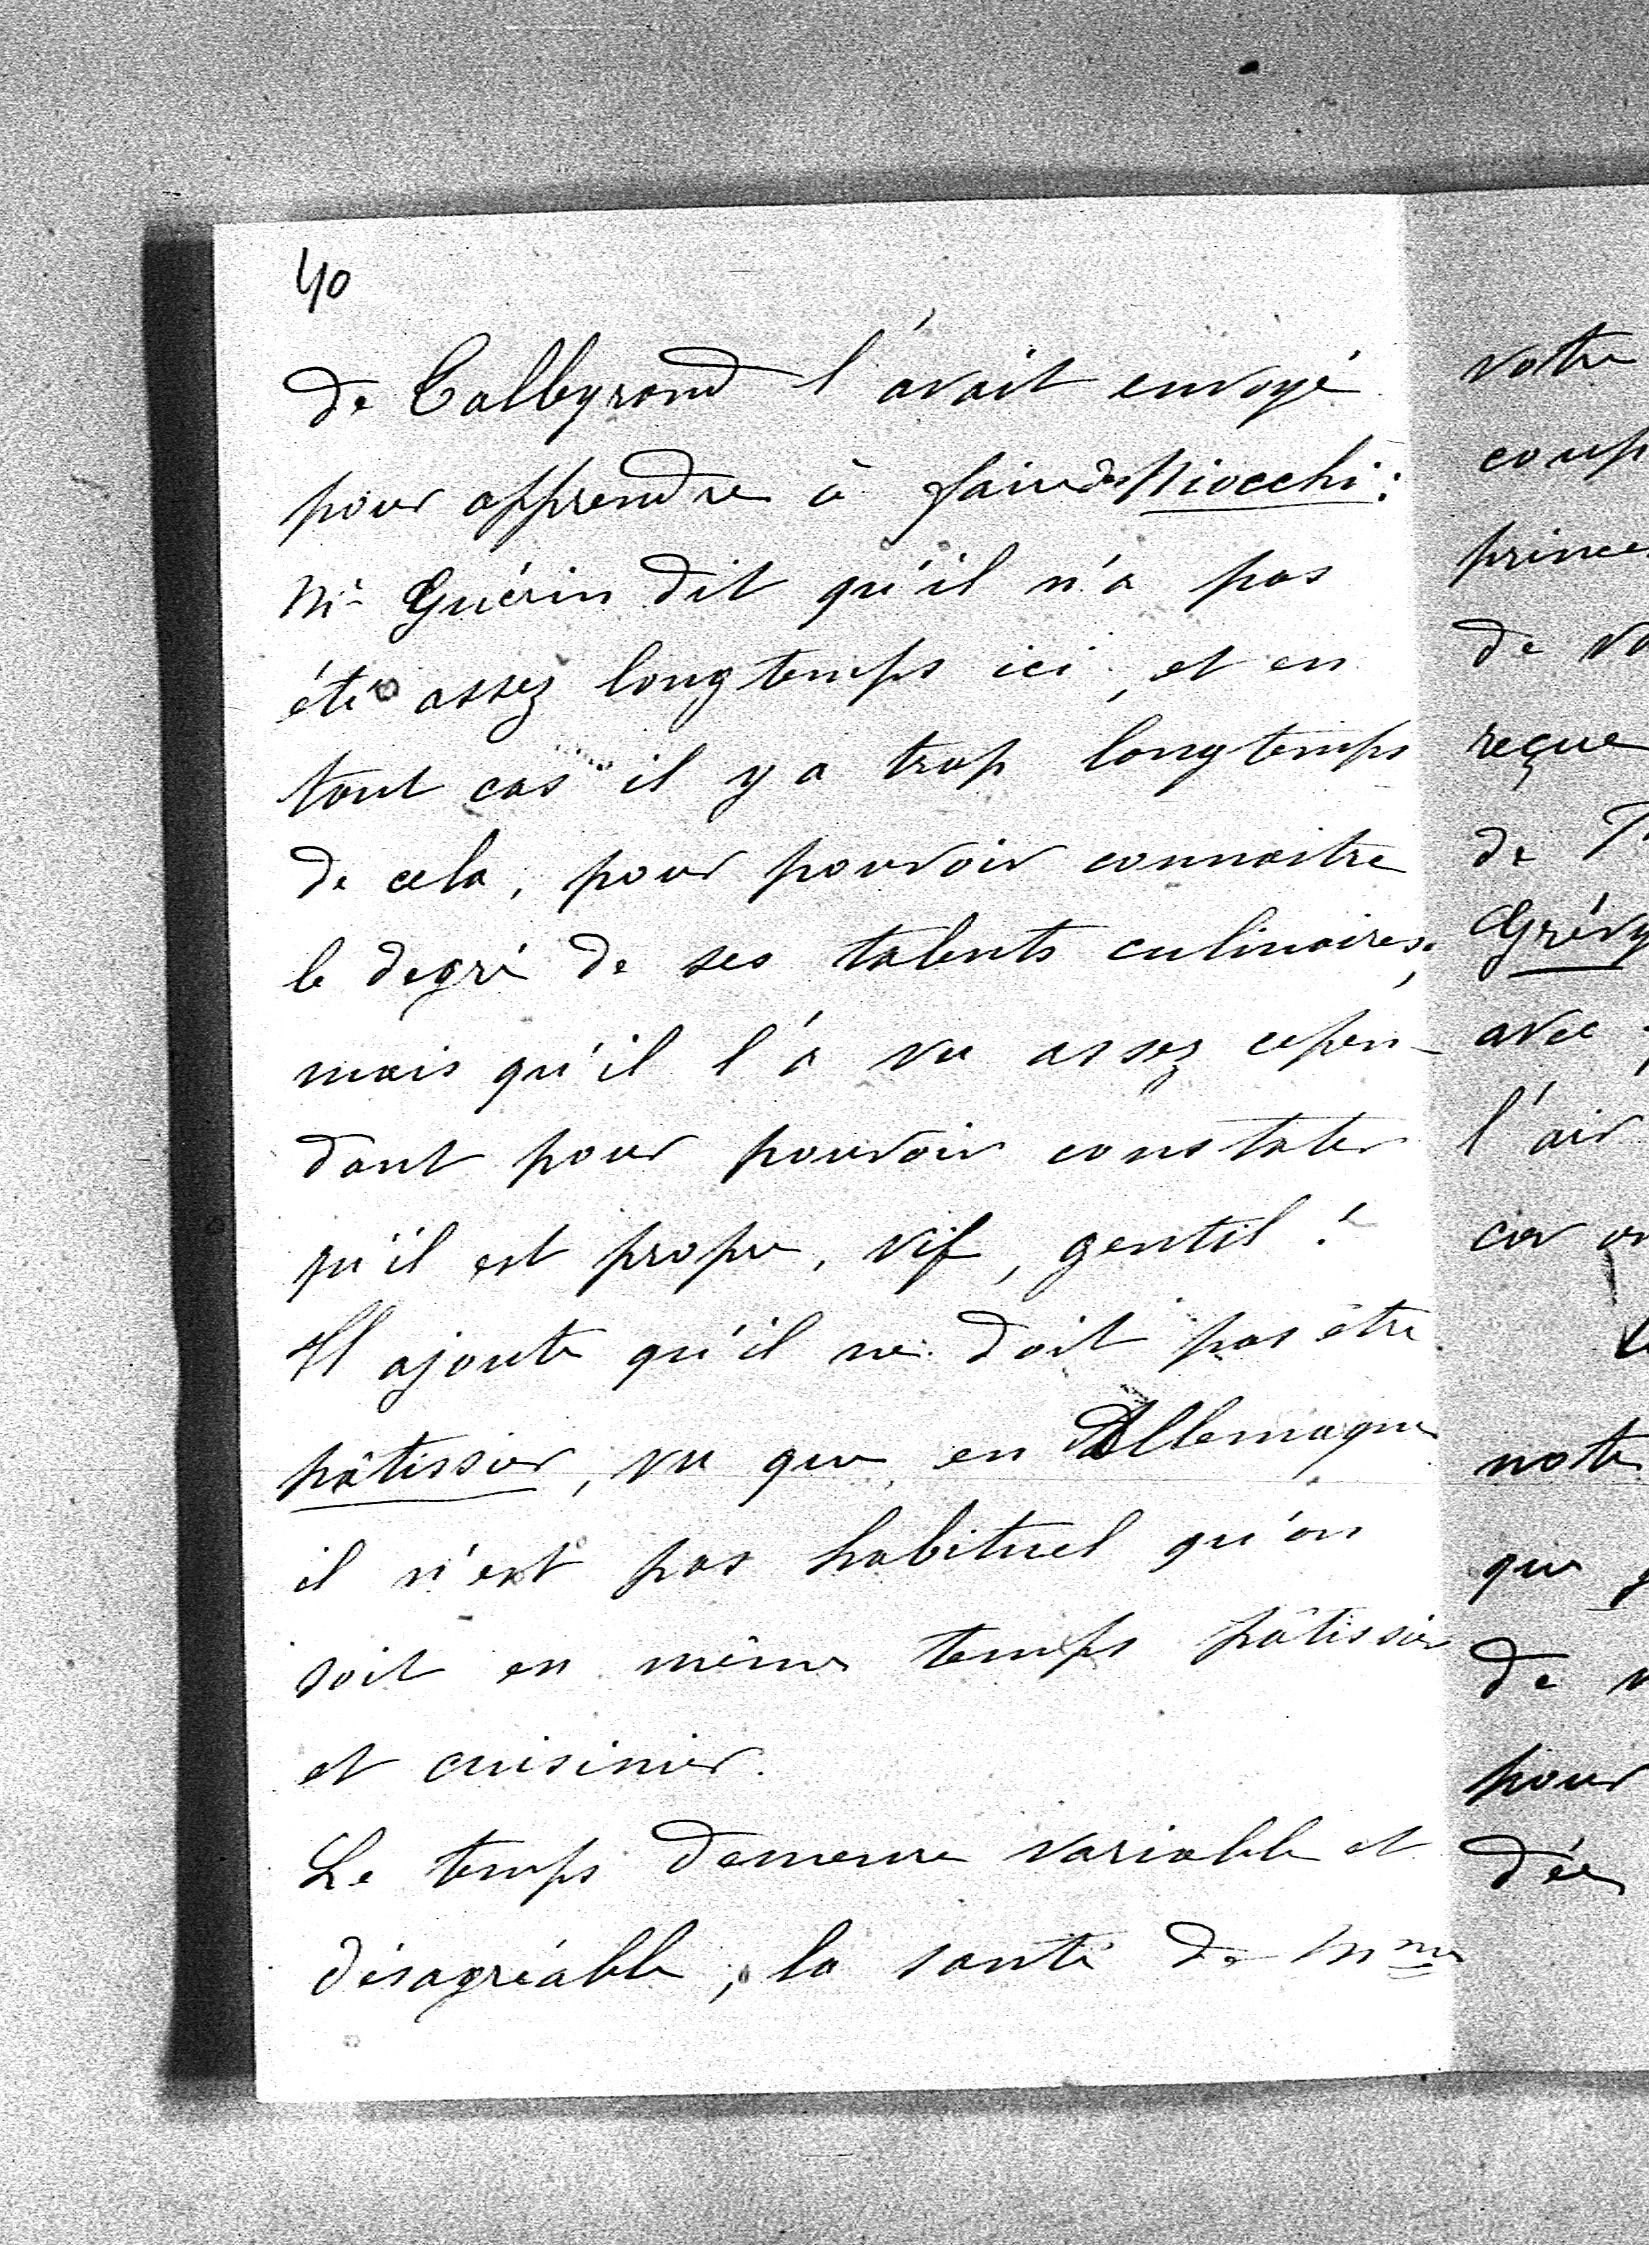 40
de Talleyrand l'avait envoyé
pour apprendre à faire des Niocchi :
Mr Guérin dit qu'il n'a pas
été assez longtemps ici, et en
tout cas il y a trop longtemps
de cela, pour pouvoir connaitre
le degré de ses talents culinaires;
mais qu'il l'a vu assez cepen-
dant pour pouvoir constater
qu'il est propre, vif, gentil !
Il ajoute qu'il ne doit pas être
pâtissier, vu que en Allemagne
il n'est pas habituel qu'on
soit en même temps pâtissier
et cuisinier.
Le temps demeure variable et
désagréable, la santé de Mme
votre
coup
prince
de vo
reçue
de
Grévy
avec
l'air
car on
note
que
de
pour
dée